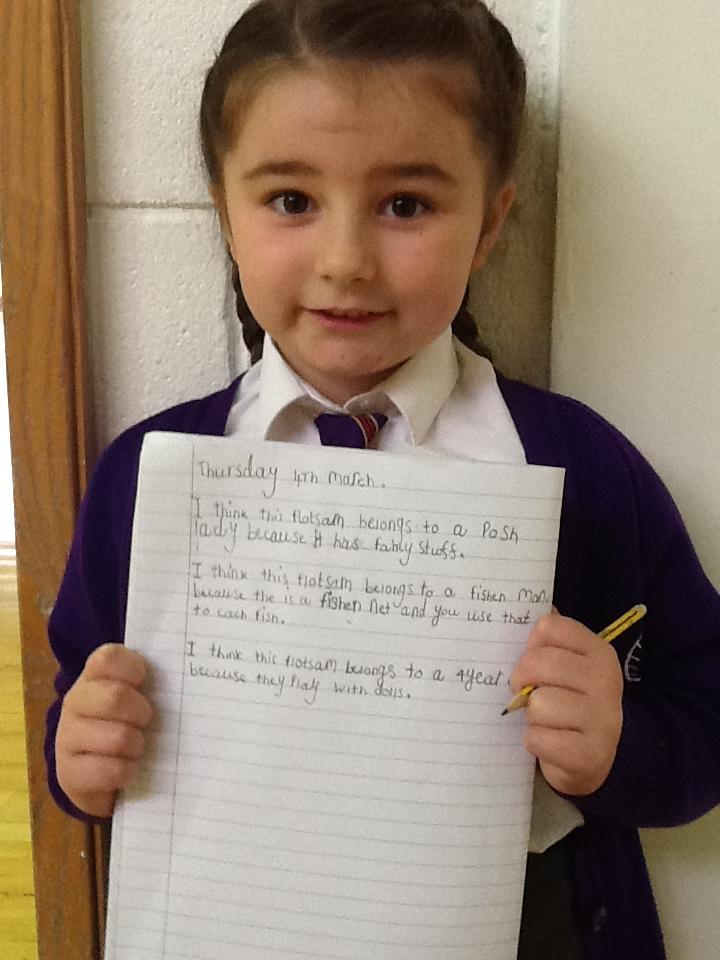 Thursday 4th march.
I think this flotsam belongs to a Posh
lady because it has fanly stuff.
I think this flotsam belongs to a fishen man
because the is a fishen net and you use that
to cach fish.
I think this flotsam belongs to a 4year
because they Play with dolls.